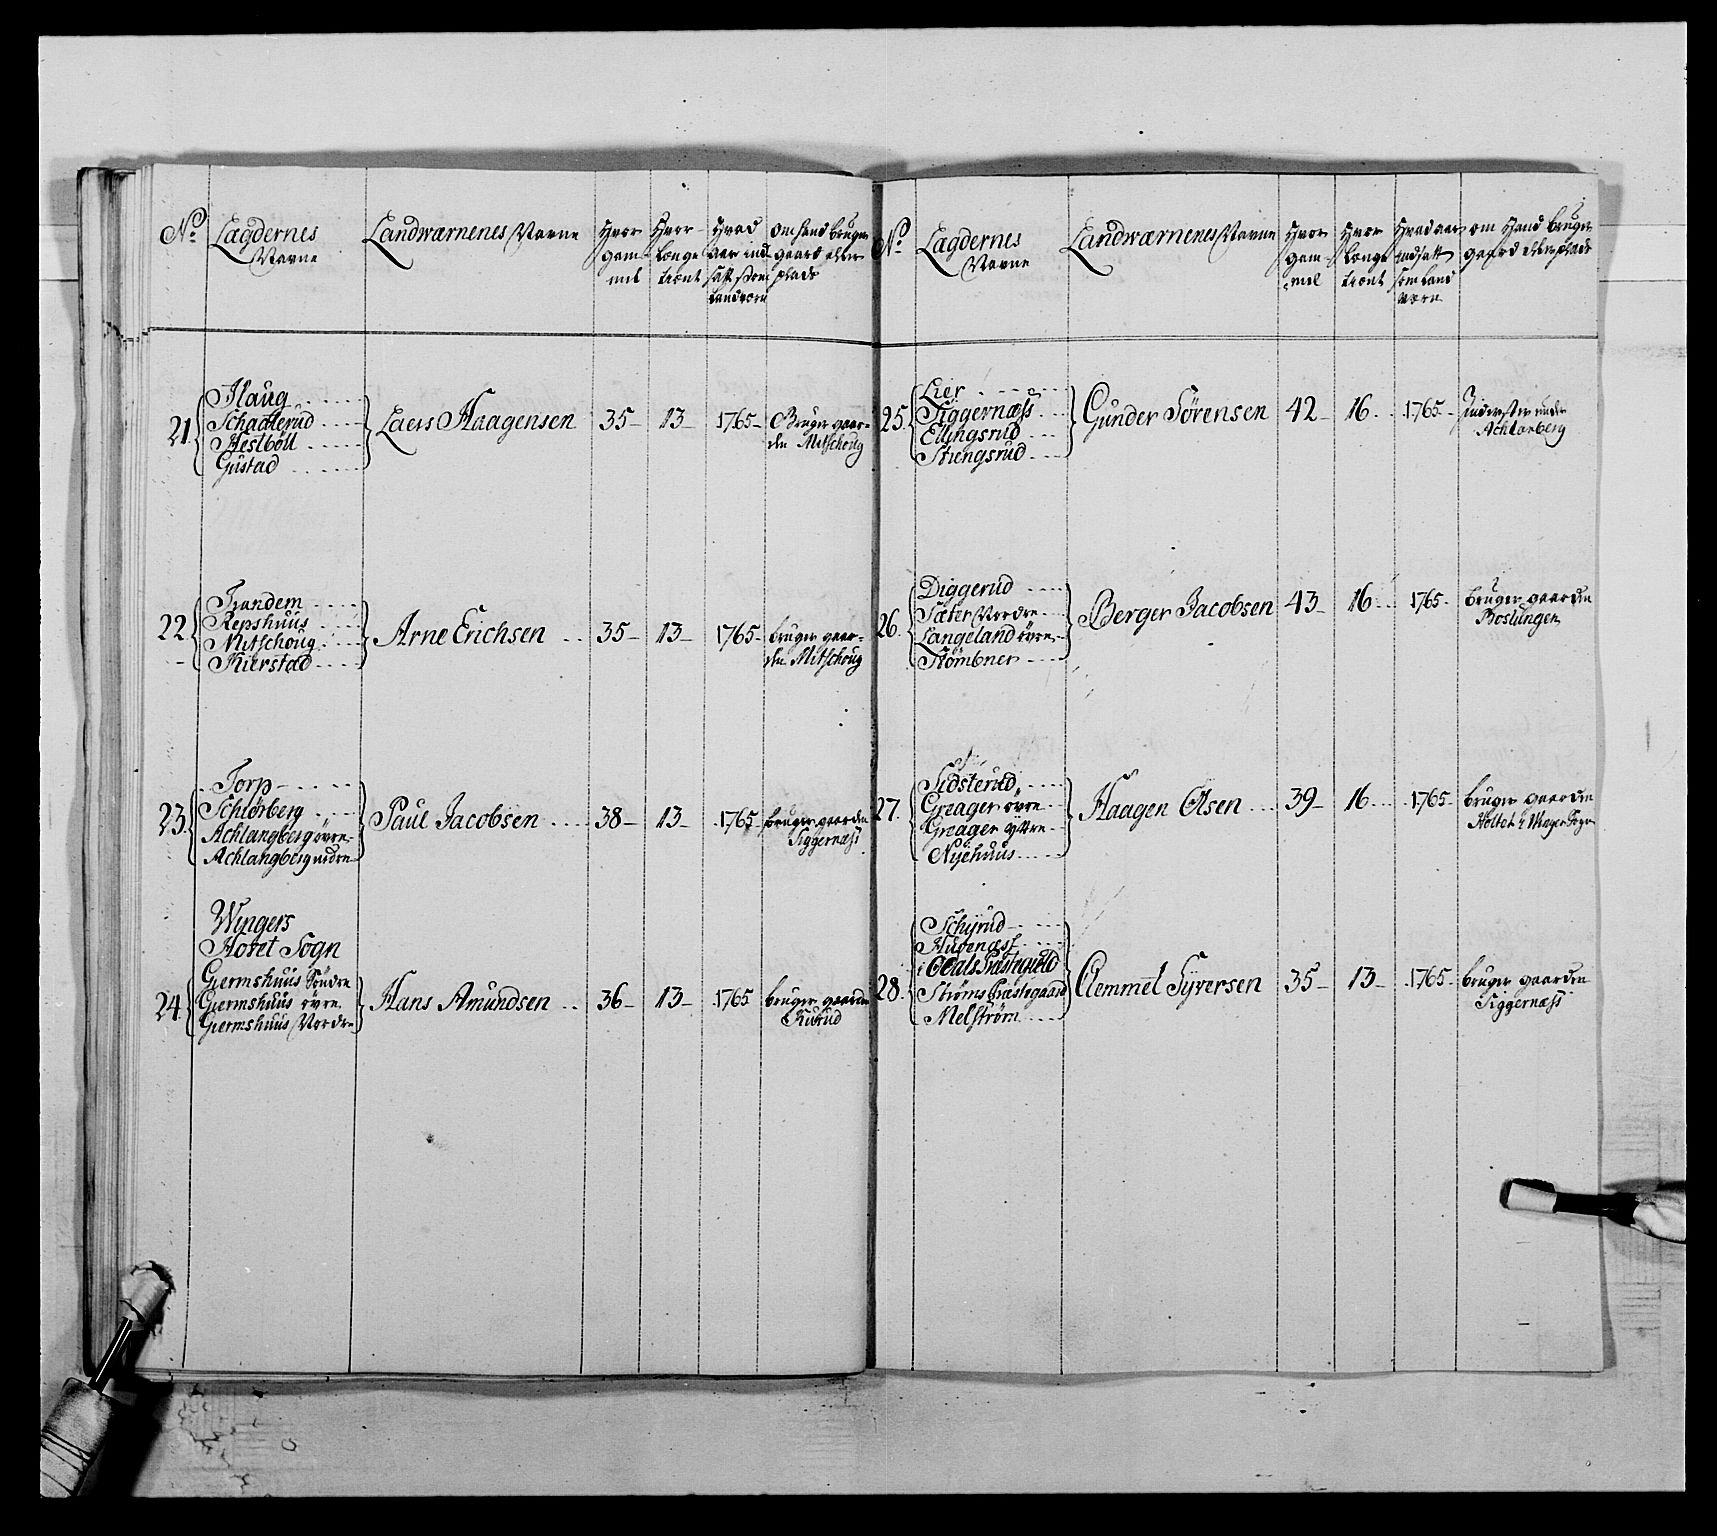 No.
Lægdernes Navne
Landwærnenes Navne
Hvor gammel
Hvor længe tient
Hvad aar indsatt som landværn
om hand bruger gaard eller plads
21.
Haug
Schaaterud
Hestböll
Gustad
Laers Haagensen 35 13 1765 Bruger gaar-
den Mitschoug
22
Trandem
Repshuus
Mitschoug
Kierstad
Arne Erichsen 35 13 1765 bruger gaar-
den Mitschoug
23.
Torp
Schiörberg
Achlangberg övre
Achlangberg nedre
Paul Jacobsen 38 13 1765 bruger gaarden
Siggernæss
Wingers
Hovet Sogn
24
Giermshuus Söndre
Giermshuus övre
Giermshuus Nordre
Hans Amundsen 36 13 1765 bruger gaarden
No.
Lægdernes Navne
Landwærnenes Navne
Hvor gammel
Hvor længe tient
Hvad aar indsatt som land værn
om Hand bruger gaard eller plads
25.
Lier
Siggernæss
Ellingsrud
Stiengsrud
Gunder Sörensen 42 16 1765 Inderster under
26.
Diggerud
Sæter Nordre
Langeland övre
Stömbner
Berger Jacobsen 43 16 1765 bruger gaarden
27.
Greager övre
Greager yttre
Nyehuus
Haagen Olsen 39 16 1765 bruger gaarden
28.
Schyrud
i Odals Præstegield
Ströms Præstegaard
Melström
Clemmet Syversen 35 13 1765 bruger gaarden
Siggernæss